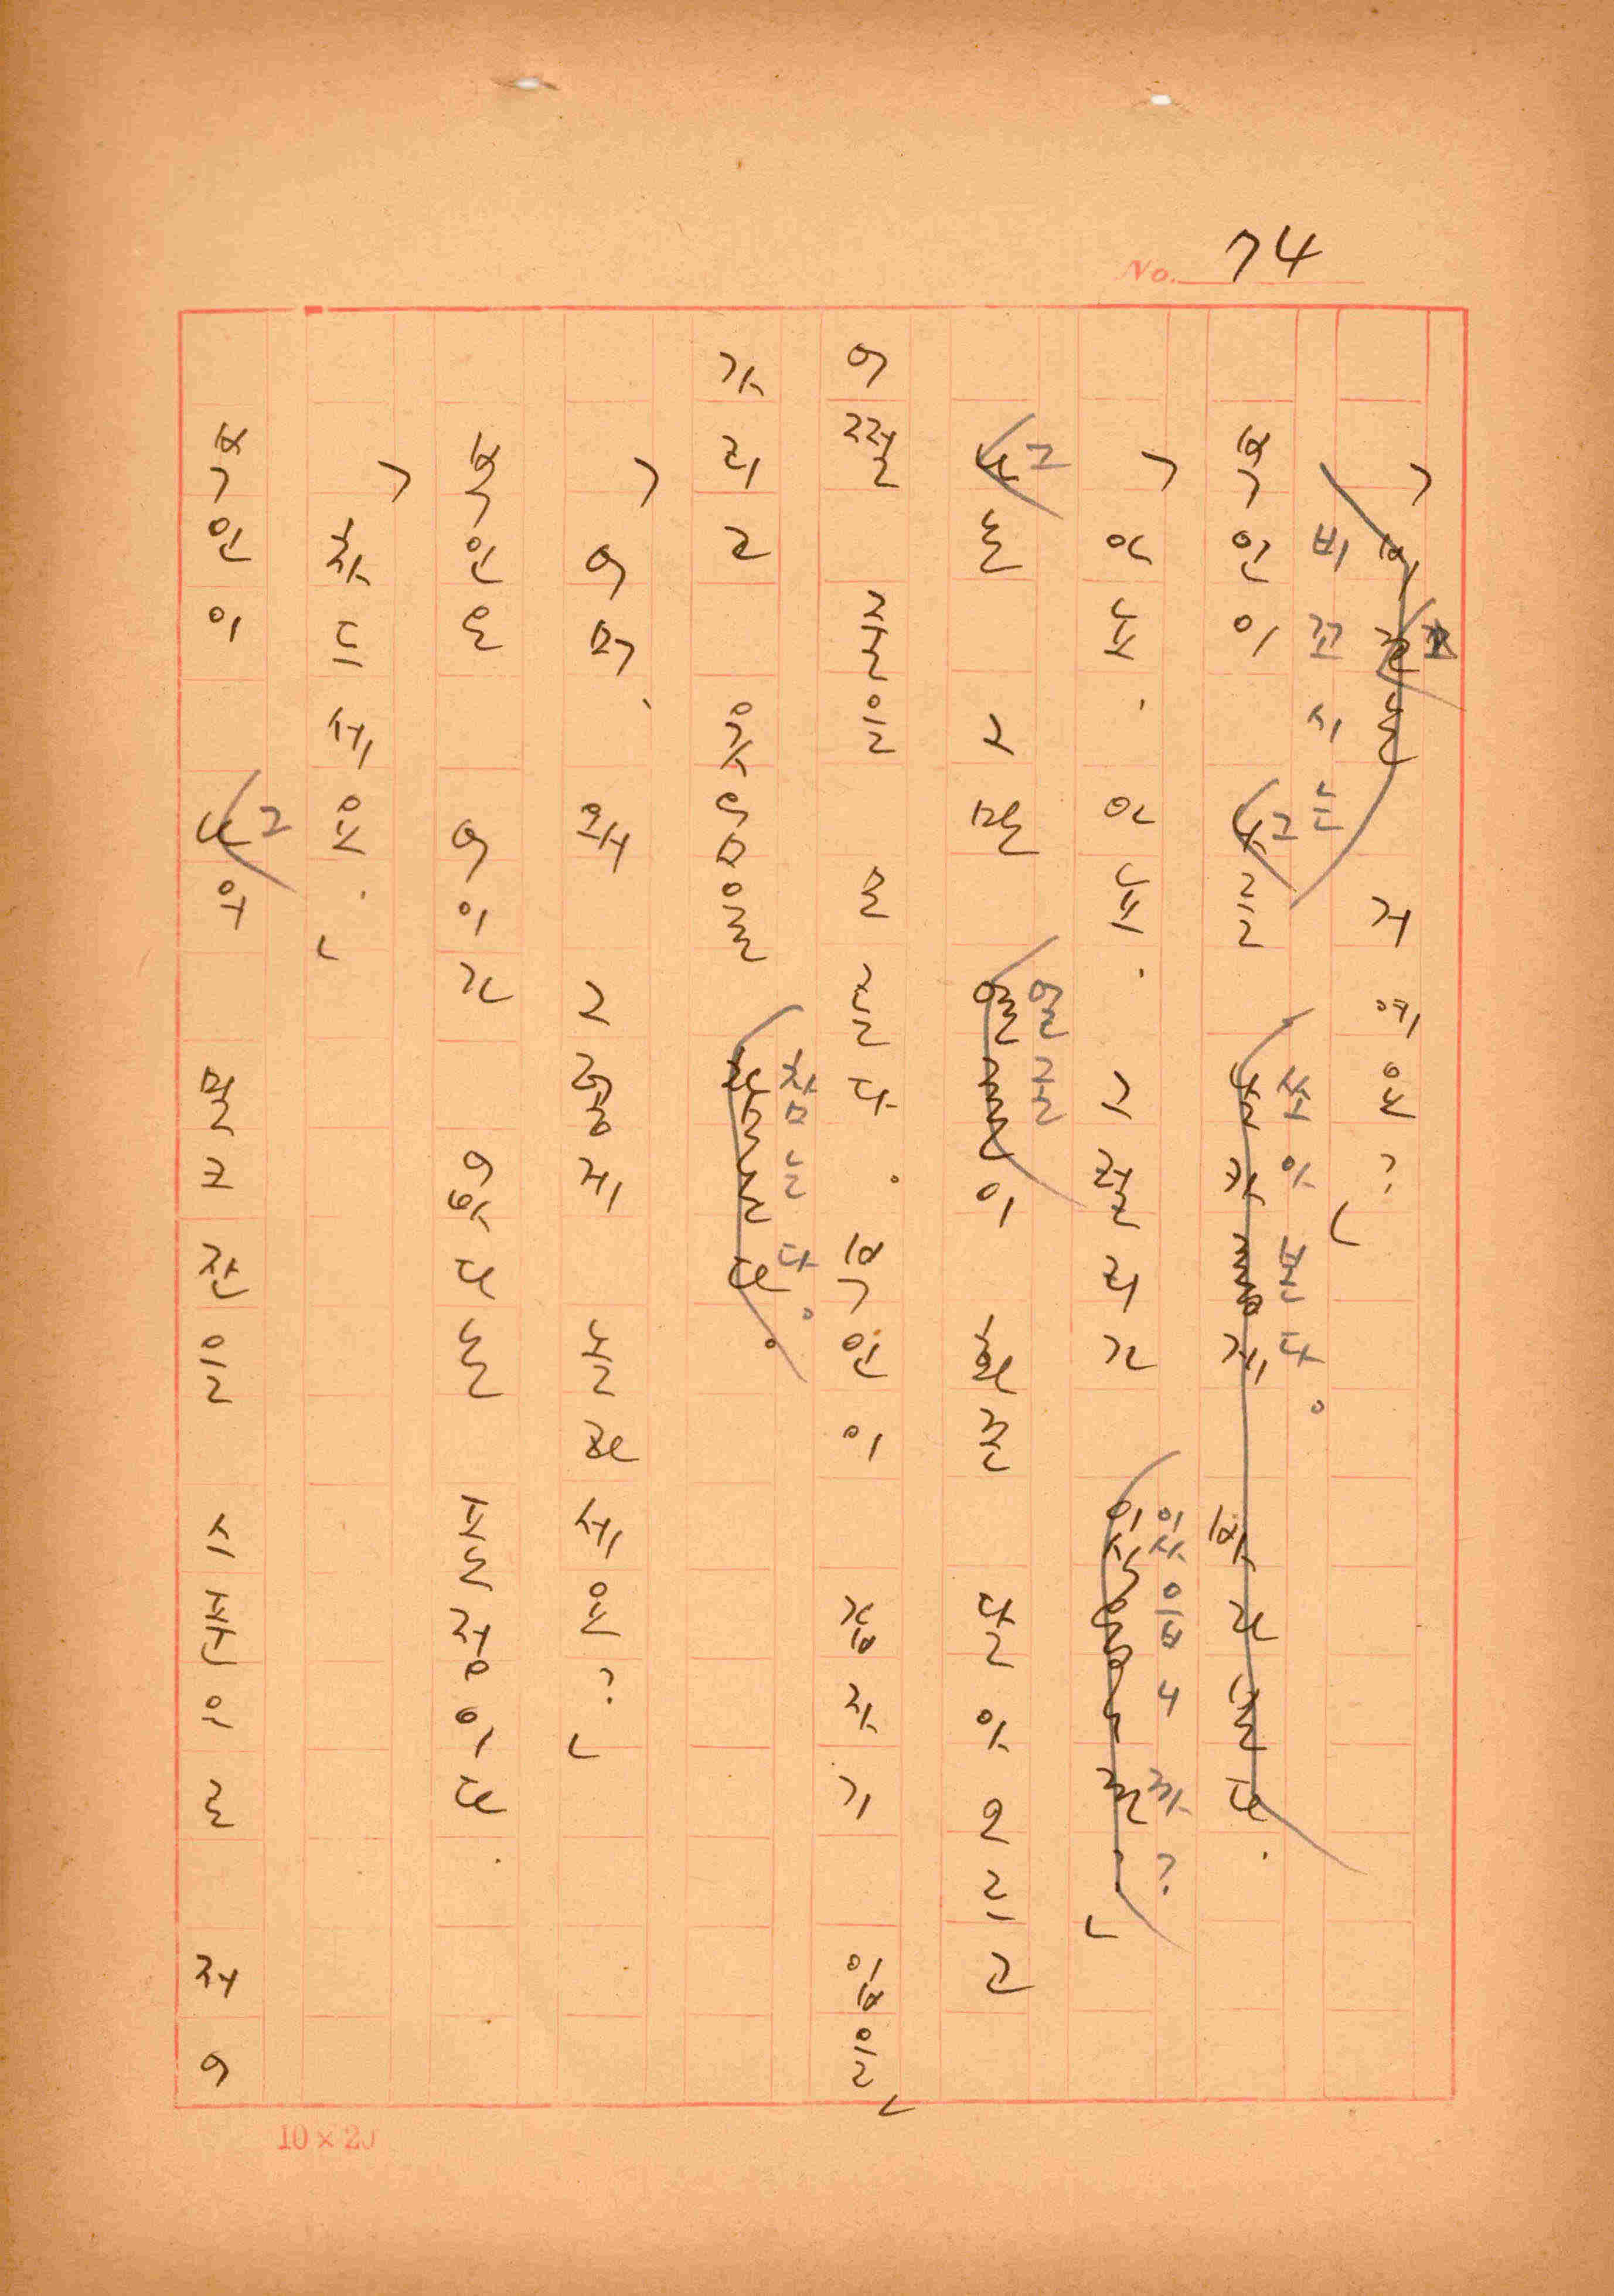 74
No.
「비꼬시는 거예요?」
부인이 그를 쏘아본다.
「아뇨. 아뇨. 그럴리가 있읍니까?」
그는 그만 얼굴이 화끈 달아오르고
어쩔 줄을 모른다. 부인이 갑자기 입을
가리고 웃음을 참는다.
「어머, 왜 그렇게 놀라세요?」
부인은 어이가 없다는 표정이다.
「차 드세요.」
부인이 그의 밀크잔을 스푼으로 저어
10×20